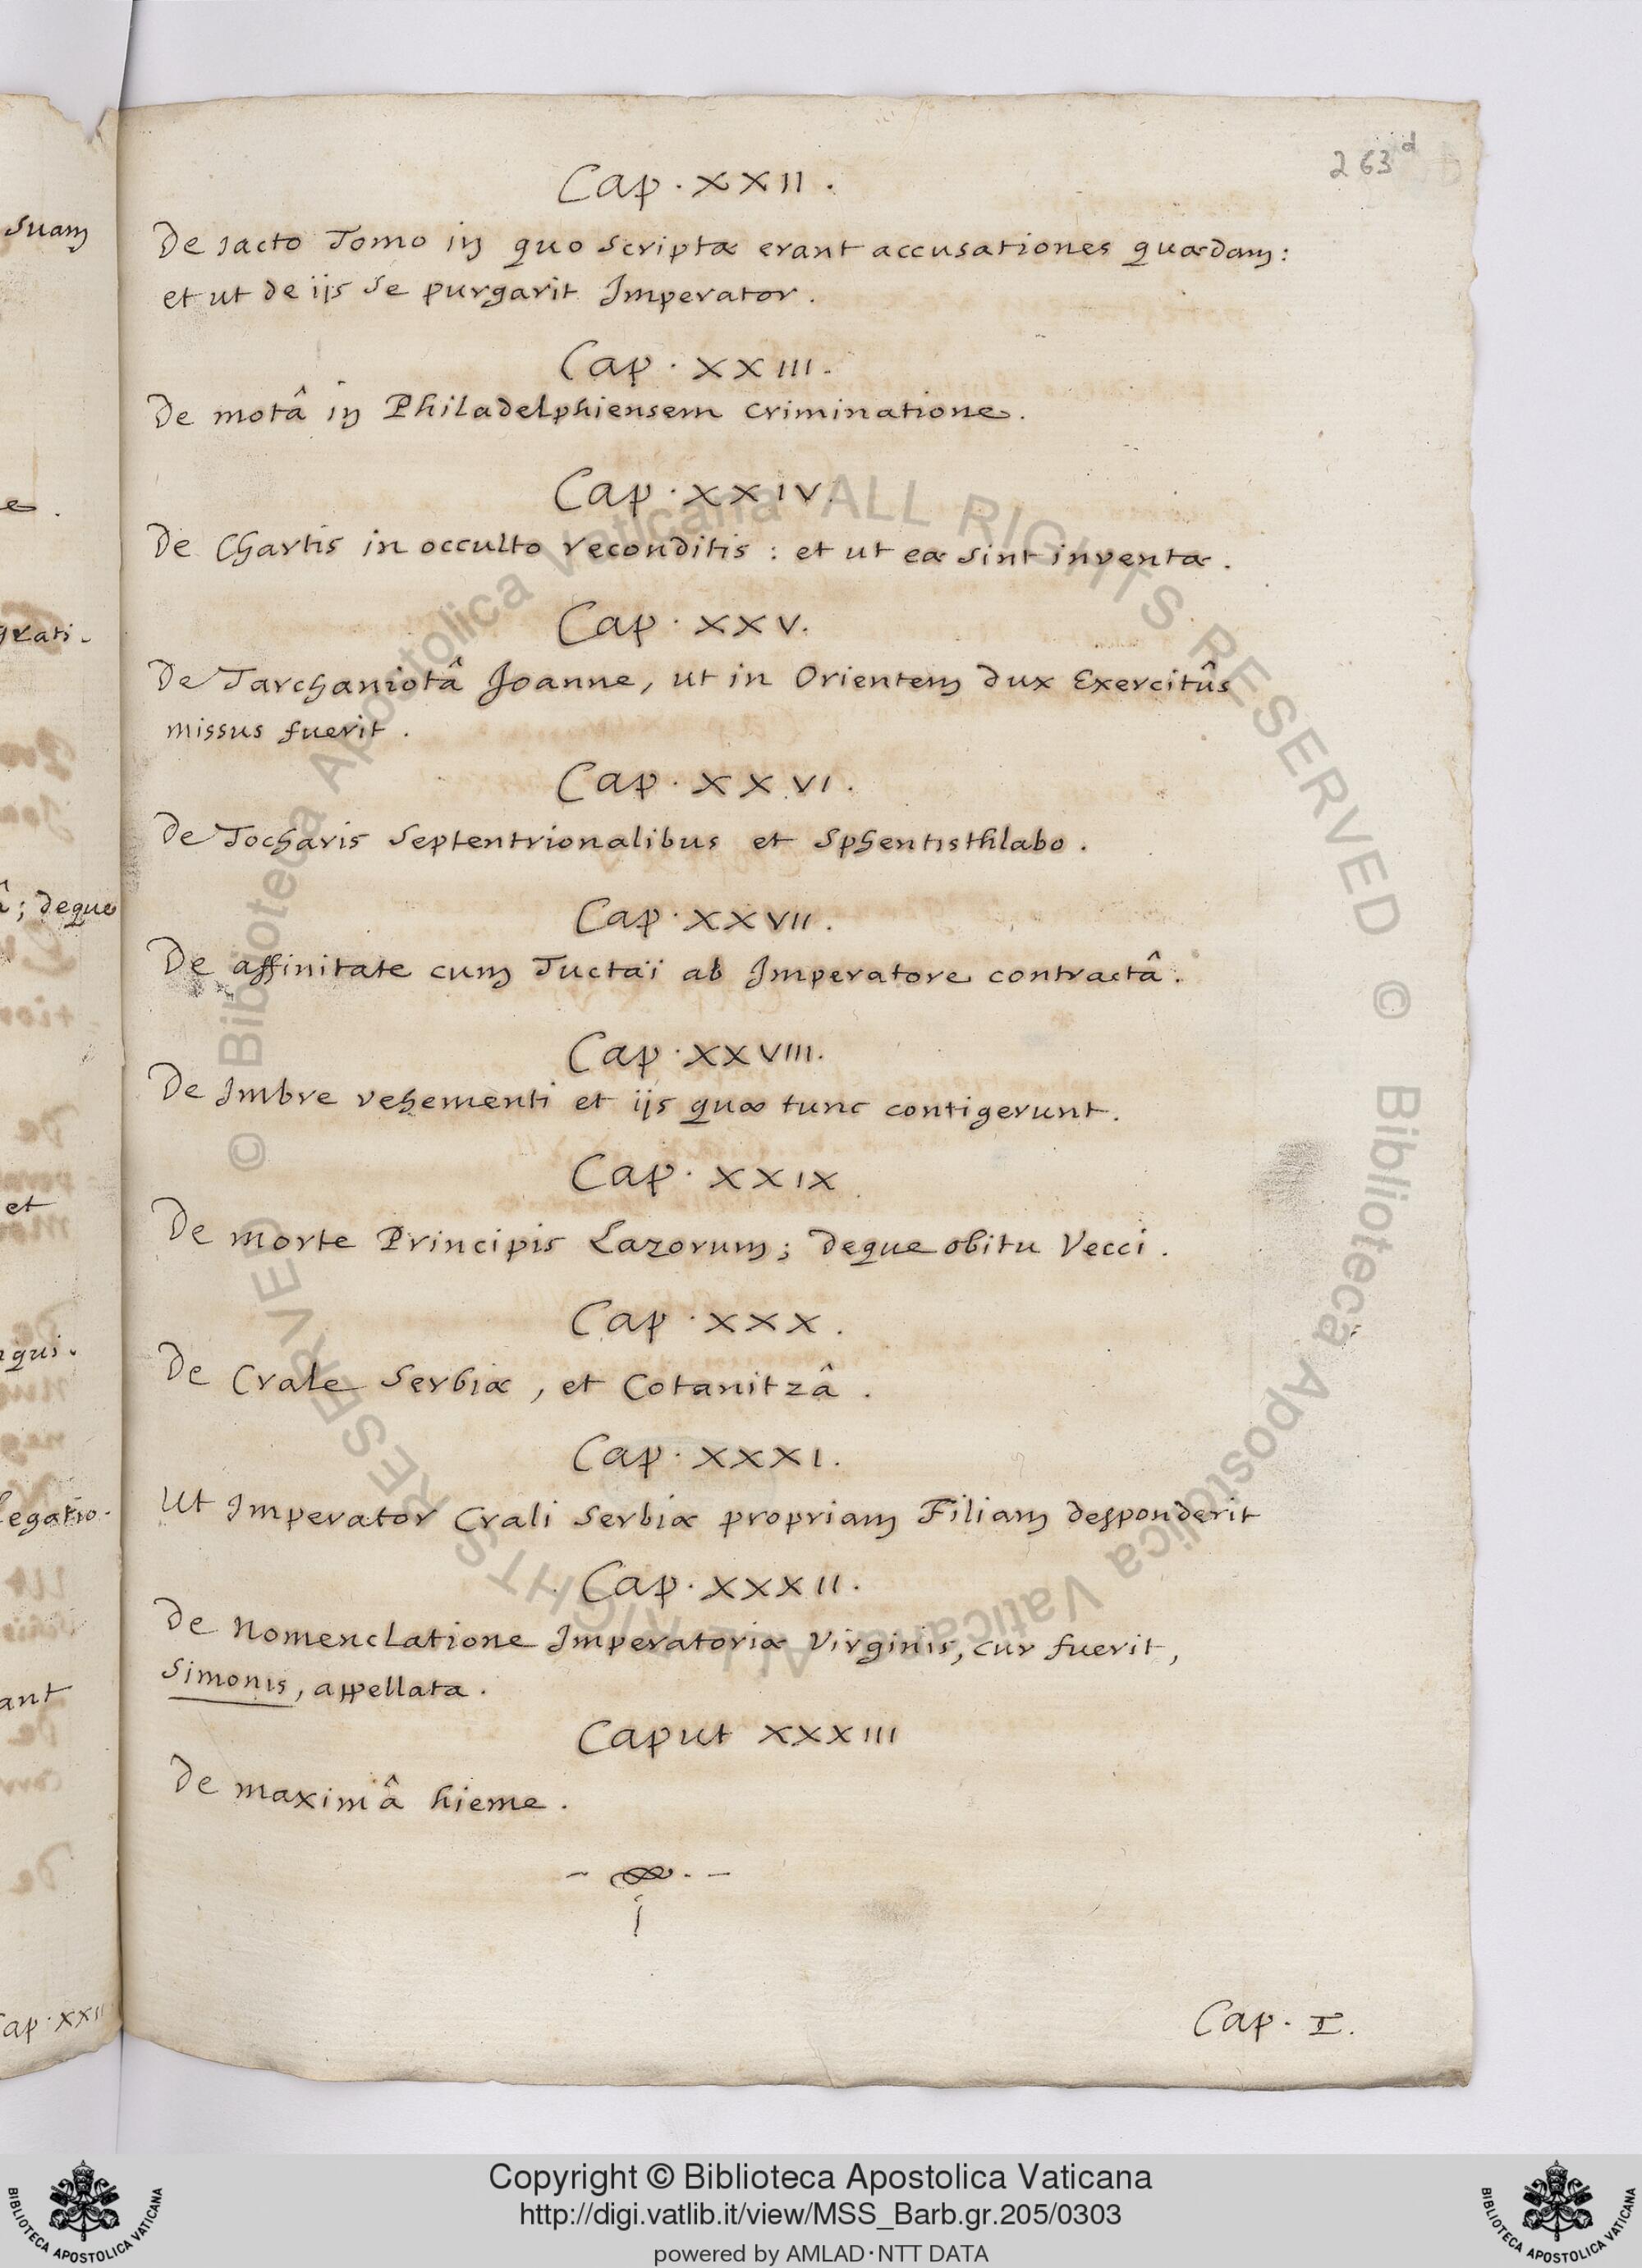 263 d
Cap. XXII.
De jacto Tomo in quo scriptæ erant accusationes quædam:
et ut de ijs se purgarit Imperator.
Cap. XXIII.
De motâ in Philadelphiensem criminatione.
Cap. XXIV.
De Chartis in occulto reconditis: et ut eæ sint inventæ.
Cap. XXV.
De Tarchaniotâ Joanne, ut in Orientem dux Exercitûs
missus fuerit.
Cap. XXVI.
De Tocharis Septentrionalibus et Sphentisthlabo.
Cap. XXVII.
De affinitate cum Tuctaï ab Imperatore contractâ.
Cap. XXVIII.
De Imbre vehementi et ijs quæ tunc contigerunt.
Cap. XXIX.
De morte Principis Lazorum; deque obitu Vecci.
Cap. XXX.
De Crale Serbiæ, et Cotanitzâ.
Cap. XXXI.
Ut Imperator Crali Serbiæ propriam Filiam desponderit
Cap. XXXII.
De Nomenclatione Imperatoriæ Virginis, cur fuerit,
Simonis, appellata.
Caput XXXIII
De maximâ hieme.
Cap. I.
suam
e.
grati-
â; deque
et
qui.
legatio-
ant
Cap. XXII
© Biblioteca Apostolica Vaticana ALL RIGHTS RESERVED
© Biblioteca Apostolica Vaticana ALL RIGHTS RESERVED
Copyright © Biblioteca Apostolica Vaticana
http://digi.vatlib.it/view/MSS_Barb.gr.205/0303
powered by AMLAD·NTT DATA
BIBLIOTECA APOSTOLICA VATICANA
BIBLIOTECA APOSTOLICA VATICANA